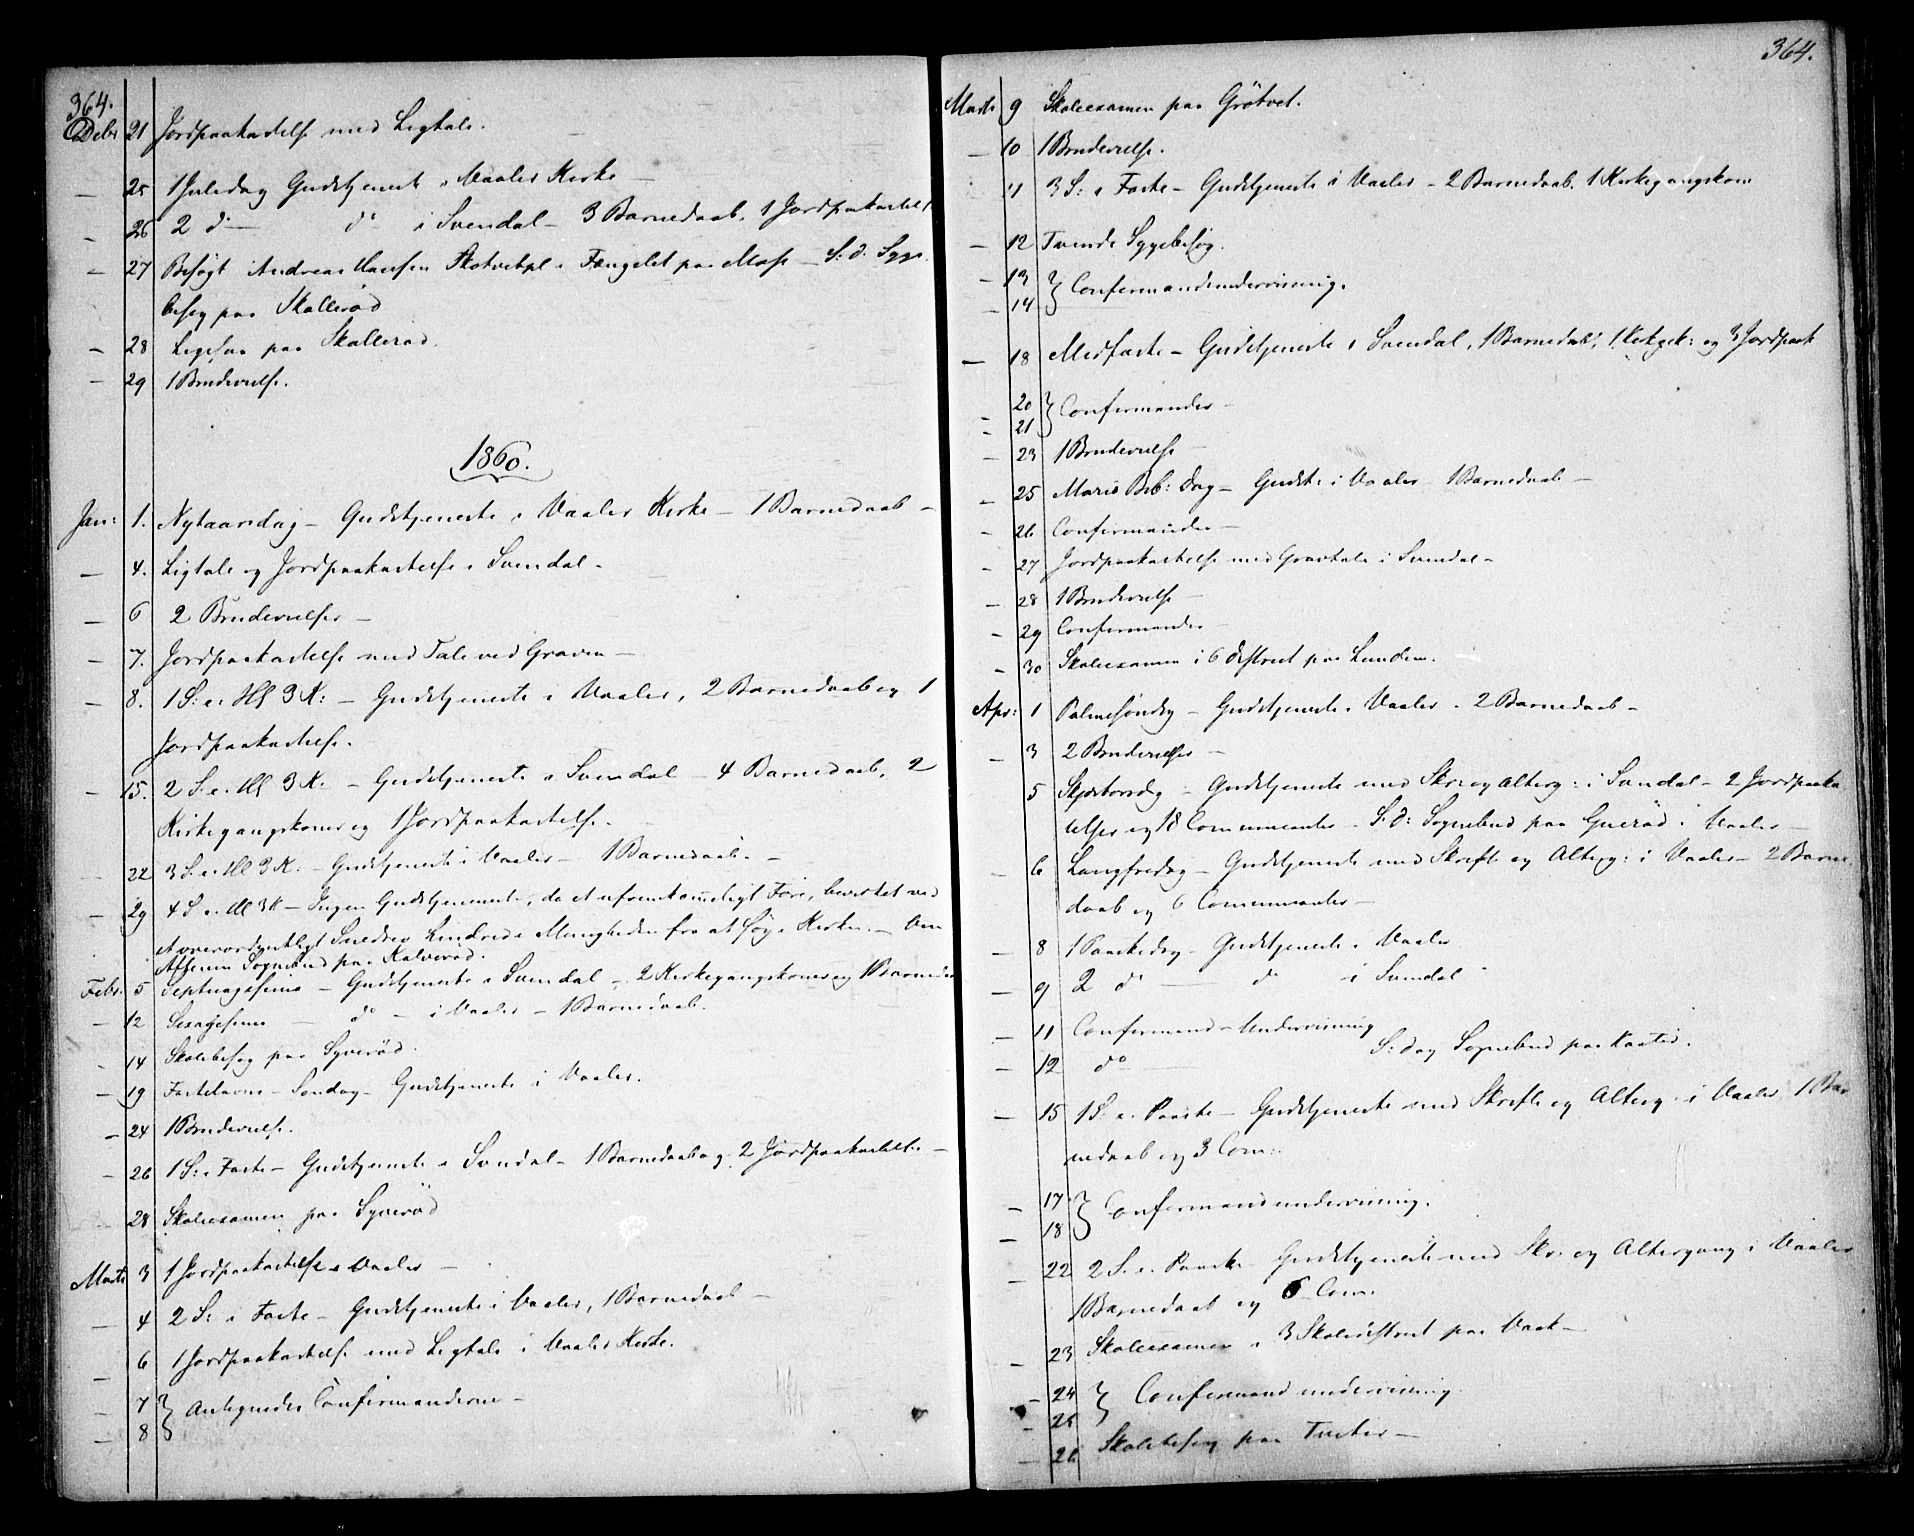 364.
Debr 21 Jordpaakastelse med Ligtale.
— 25 1 Juledag Gudstjeneste i Vaaler Kirke —
— 26 2 do — do i Svendal — 3 Barnedaab, 1 Jordpaakastelse
— 27 Besøgt Andreas Hansen i Fængslet paa Moss — S. d. Syge-
besøg paa Skallerød
— 28 paa Skallerød.
— 29 1 Brudevielse.
1860.
Jan: 1. Nytaarsdag — Gudstjeneste i Vaaler Kirke — 1 Barnedaab —
— 4. Ligtale og Jordpaakastelse i Svendal —
— 6 2 Brudevielser —
— 7. Jordpaakastelse med Tale ved Graven —
— 8. 1 S: e. Hl 3 K: — Gudstjeneste i Vaaler, 2 Barnedaab og 1
Jordpaakastelse.
— 15. 2 S. e. Hl 3 K. — Gudstjeneste i Svendal — 4 Barnedaab, 2
Kirkegangskoner og 1 Jordpaakastelse —
— 22 3 S. e. Hl 3 K. — Gudstjeneste i Vaaler — 1 Barnedaab. —
— 29 4 S. e. Hl 3 K — Ingen Gudstjeneste, da et ufremkommeligt Føre, bevirket ved
overordentligt Snedrev hindrede Menigheden fra at søge Kirken. — Om
Aftenen Sognebud paa Kalverød.
Febr. 5 Septuagesima — Gudstjeneste i Svendal — 2 Kirkegangskoner og 1 Barnedaab
— 12 Sexagesima — do — i Vaaler — 1 Barnedaab.
— 14 Skolebesøg paa Syverød.
— 19 Fastelavns-Søndag — Gudstjeneste i Vaaler.
— 24 1 Brudevielse.
— 26 1 S: i Faste — Gudstjeneste i Svendal — 1 Barnedaab og 2 Jordpaakastelse —
— 28 Skoleexamen paa Syverød
Marts 3 1 Jordpaakastelse i Vaaler —
— 4 2 S: i Faste — Gudstjeneste i Vaaler, 1 Barnedaab —
— 6 1 Jordpaakastelse med Ligtale i Vaaler Kirke.
— 7
— 8 } Antegnedes Confirmanderne —
364.
Marts 9 Skoleexamen paa Grøtvet.
— 10 1 Brudevielse.
— 11 3 S: i Faste — Gudstjeneste i Vaaler — 2 Barnedaab. 1 Kirkegangskone
— 12 Tvende Sygebesøg.
— 13
— 14 } Confirmandundervisning.
— 18 Midfaste — Gudstjeneste i Svendal, 1 Barnedaab, 1 Kirkegk: og 3 Jordpaak
— 20
— 21 } Confirmander —
— 23 1 Brudevielse —
— 25 Mariæ Beb: Dag — Gudst: i Vaaler — 1 Barnedaab —
— 26 Confirmander —
— 27 Jordpaakastelse med Gravtale i Svendal —
— 28 1 Brudevielse —
— 29 Confirmander —
— 30 Skoleexamen i 6 District paa Lunden.
Apr: 1 Palmesøndag — Gudstjeneste i Vaaler — 2 Barnedaab —
— 3 2 Brudevielser —
5 Skjærtorsdag — Gudstjeneste med Skr: og Alterg: i Svendal — 2 Jordpaaka
stelser og 18 Communicanter — S. d: Sognebud paa i Vaaler —
— 6 Langfredag — Gudstjeneste med Skrift og Alterg: i Vaaler — 2 Barne
daab og 6 Communicanter —
— 8 1 Paaskedag — Gudstjeneste i Vaaler
— 9 2 do — do i Svendal —
— 11 Confirmand-Undervisning
— 12 do — S: Dag Sognebud paa
— 15 1 S. e. Paaske — Gudstjeneste med Skrift og Alterg. i Vaaler 1 Bar
nedaab og 3 Com:
— 17
— 18 } Confirmandundervisning.
— 22 2 S. e. Paaske — Gudstjeneste med Skr: og Altergang i Vaaler
1 Barnedaab og 6 Com:
— 23 Skoleexamen i 3 Skoledistrict paa —
— 24
— 25 } Confirmandundervisning.
— 26 Skolebesøg paa —